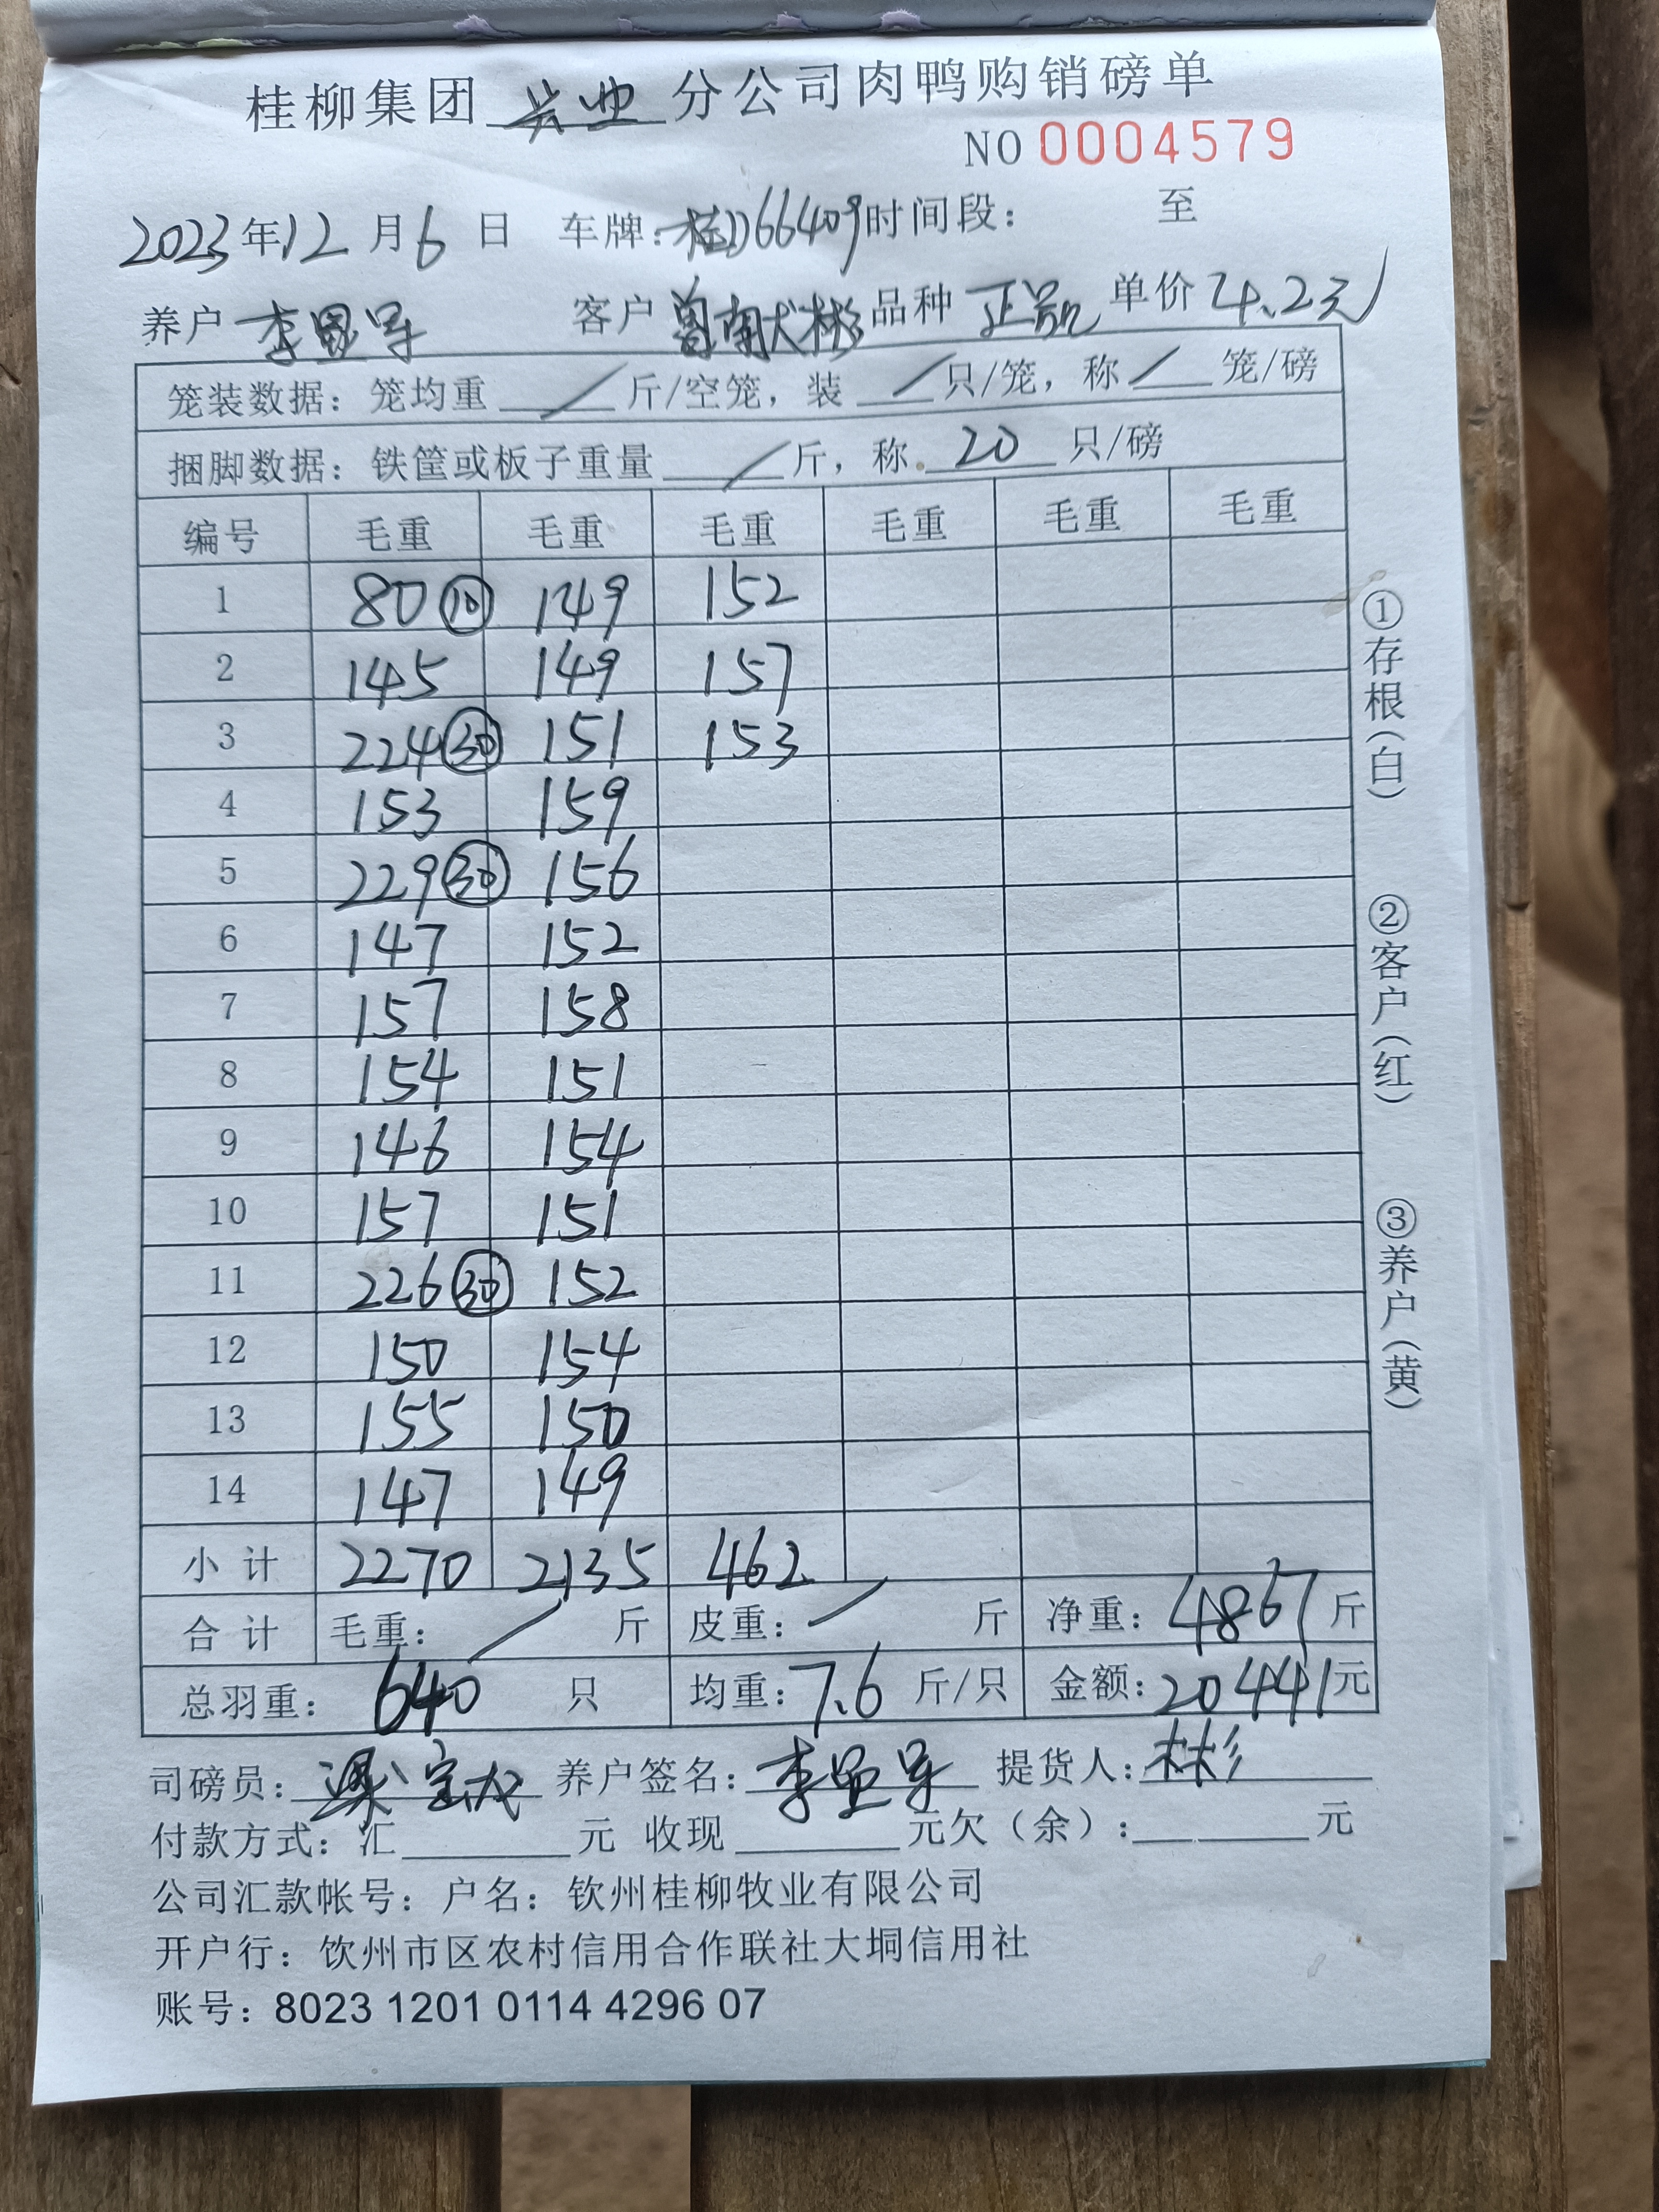 桂柳集团 兴业 分公司肉鸭购销磅单
NO 0004579
2023年12月6日 车牌：桂D66409 时间段： 至
养户 李显军 客户 曾南献彬 品种 正凯 单价 4.2元
笼装数据：笼均重 / 斤/空笼，装 / 只/笼，称 / 笼/磅
捆脚数据：铁筐或板子重量 / 斤，称 20 只/磅
编号 毛重 毛重 毛重 毛重 毛重 毛重
1 80 ⑩ 149 152
2 145 149 157
3 224 ㉚ 151 153
4 153 159
5 229 ㉚ 156
6 147 152
7 157 158
8 154 151
9 146 154
10 157 151
11 226 ㉚ 152
12 150 154
13 155 150
14 147 149
小计 2270 2135 462
合计 毛重： / 斤 皮重： / 斤 净重：4867斤
总羽重： 640 只 均重：7.6 斤/只 金额：20441元
司磅员：梁宝龙 养户签名：李显军 提货人：彬
付款方式：汇______元 收现______元欠（余）：______元
公司汇款帐号：户名：钦州桂柳牧业有限公司
开户行：钦州市区农村信用合作联社大垌信用社
账号：8023 1201 0114 4296 07
①存根（白）
②客户（红）
③养户（黄）